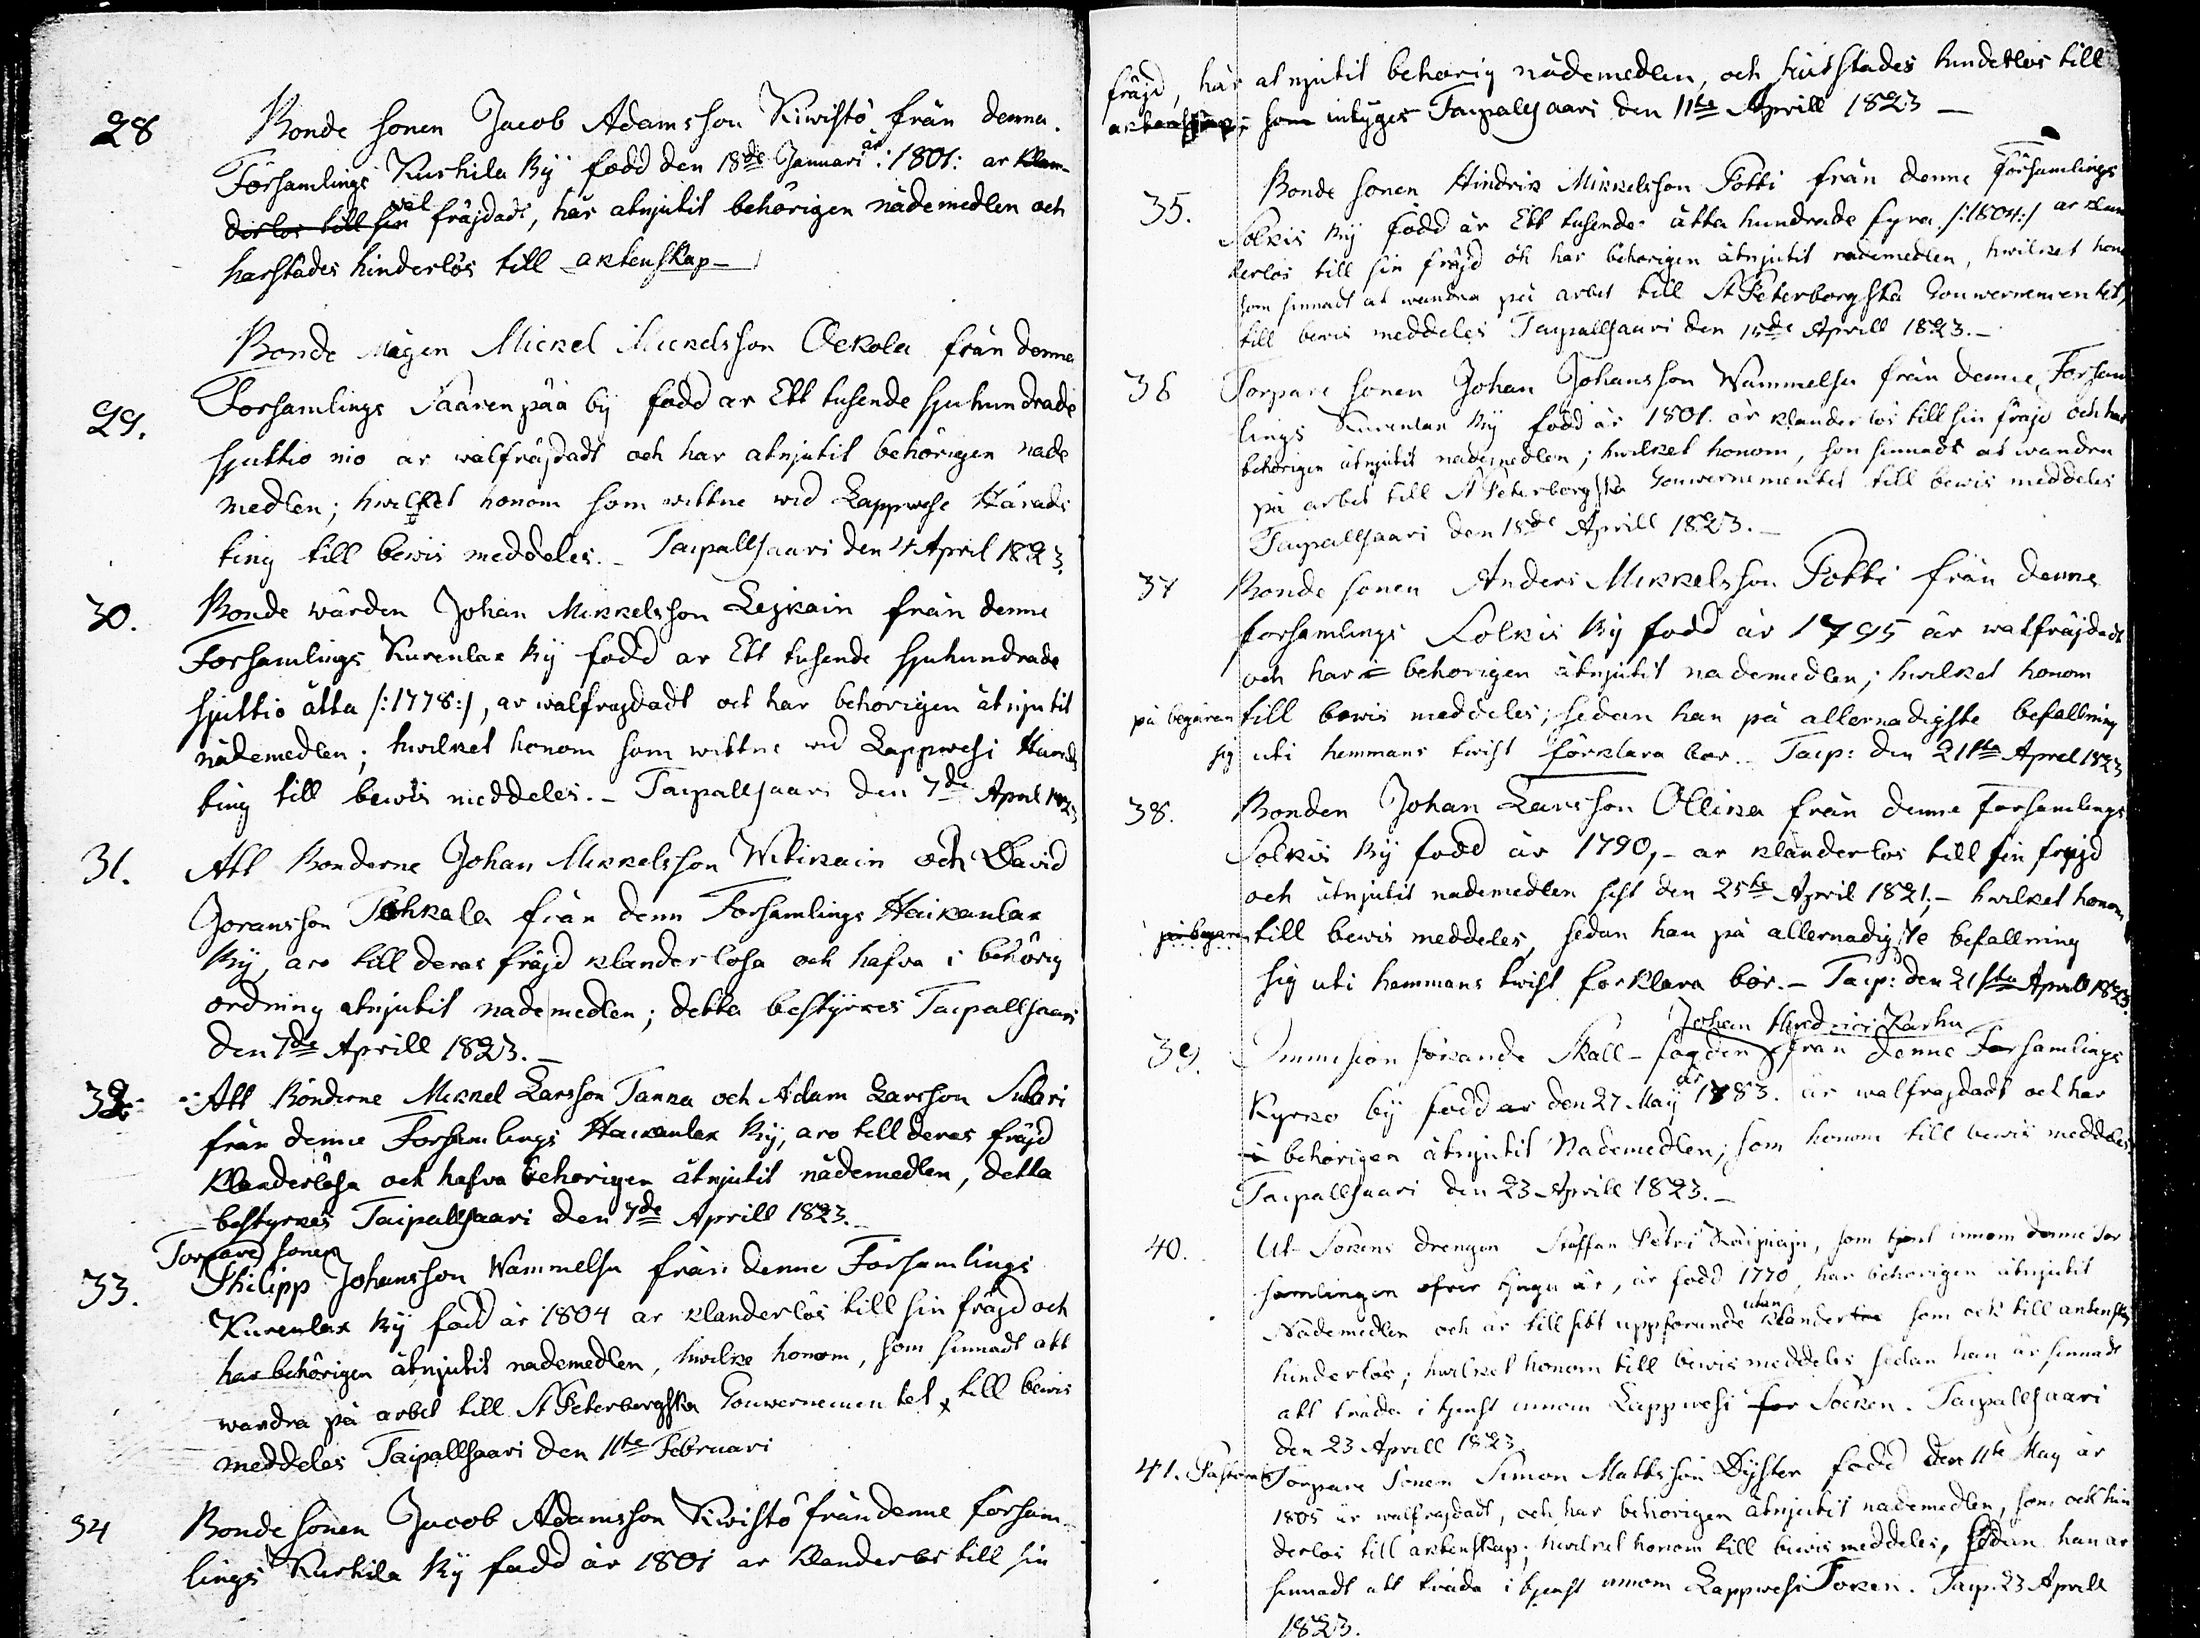 28 Bonde sonen Jacob Adamsson Kiwistö från denna
Församlings Kurhila By född den 18de Januari år: 1801: ar Klan-
derlos till sin wäl fräjdadt, har atnjutit behörigen nådemedlen och
härstädes hinderlös till aktenskap—
Bonde Mågen Mickel Mickelsson Ockola från denne
29. Forsamlings Saarenpää by fodd ar Ett tusende sjuhundrade
sjuttio nio ar walfräjdadt och har atnjutit behörigen nade
medlen; hwilket honom som wittne wid Lappwesi Härads
ting till bewis meddeles.- Taipallsaari den 4 April 1823.
30. Bonde wärden Johan Mikkelsson Leskain från denne
Forsamlings Kurenlax By fodd ar Ett tusende sjuhundrade
sjuttio åtta /:1778:/, ar walfragdadt och har behörigen åtnjutit
nådemedlen; hwilket honom som wittne wid Lappwesi Harads
ting till bewis meddeles.- Taipallsaari den 7de April 1823
31. Att Bonderne Johan Mikkelsson Witikain och David
Joransson Tohkala från denn Forsamlings Haikanlax
By, aro till deras fräjd klanderlosa och hafva i behörig
ordning atnjutit nademedlen; detta bestyrkes Taipallsaari
den 7de Aprill 1823.-
32. Att Bönderne Mikkel Larsson Tanna och Adam Larsson Sulari
från denne Forsamlings Haikanlax By, aro till deras fräjd
Klanderlösa och hafva behorigen åtnjutit nådemedlen, detta
bestyrkes Taipallsaari den 7de Aprill 1823.-
Torpare sonen
33. Philipp Johansson Wammelsu från denne Församlings
Kurenlax By född år 1804 ar klanderlös till sin fräjd och
har behörigen åtnjutit nademedlen, hwilke honom, som sinnadt att
wandra på arbet till St Peterborgska Gouwernementet till bewis
meddeles Taipallsaari den 11te Februari
34 Bonde sonen Jacob Adamsson Kiwistö från denne forsam-
lings Kurhila By fadd år 1801 ar klanderlos till sin
fräjd, har atnjutit behörig nådemedlen, och härstades hinderlos till
aktenskap, som intyges Taipalsaari den 11te Aprill 1823 —
35. Bonde sonen Hindrik Mikkelsson Potti från denne Församlings
Solkis By född år Ett tusende åtta hundrade fyra /:1804:/ ar klan
derlos till sin fräjd ok har behörigen åtnjutit nademedlen, hwilket hono
som sinnadt at wandra på arbet till St Peterborgska Gouwernementet,
till bewis meddeles Taipallsaari den 15de Aprill 1823.-
36 Torpare sonen Johan Johansson Wammelsu från denne Forsam
lings Kurenlax By född år 1801. är klanderlos till sin fräjd och har
behörigen åtnjutit nademedlen; hwilket honom, son sinnadt at wandra
på arbet till St Peterborgska Gouwernementet till bewis meddeles
Taipallsaari den 18de Aprill 1823.-
37 Bonde sonen Anders Mikkelsson Potti från denne
forsamlings Solkis By fodd år 1795 är walfräjdadt
och har i behorigen åtnjutit nademedlen; hwilket honom
på begäran till bewis meddeles; sedan han på allernadigste befallning
sig uti hemmans twist förklara bör.- Taip: den 21sta Aprel 1823
38. Bonden Johan Larsson Ollika från denne Forsamlings
Solkis By fodd år 1790,- ar klanderlos till sin frajd
och åtnjutit nademedlen sist den 25te April 1821;- hwilket honom
på begaran till bewis meddeles, sedan han på allernadigste befallning
sig uti hemmans twist forklara bör.- Taip: den 21sta Aprill 1823.
Johan Hindrici Karhu
39. Immision sökande Skall-fogden från denne Forsamlings
Kyrko by fodd ar den 27 Maÿ år 1783. är walfrajdadt och har
i behörigen åtnjutit Nademedlen; som honom till bewis meddeles
Taipallsaari den 23 Aprill 1823.-
40. Ut Sokens drengen Staffan Petri Räipiäin, som tjent innom denne för
samlingen ofver tjugu år, är fodd 1770, har behorigen åtnjutit
Nådemedlen och är till sitt uppforande utan klander som ock till aktenskap
hinderlös; hwilket honom till bewis meddeles sedan han är sinnadt
att träda i tjenst innom Lappwesi for Socken. Taipallsaari
den 23 Aprill 1823.
41. Torpare Sonen Simon Mattsson Dÿster fodd den 11te May år
1805 är walfrajdadt, och har behörigen åtnjutit nademedlen, som ock hin
derlos till aktenskap; hwilket honom till bewis meddeles, sedan han ar
sinnadt att träda i tjenst innom Lappwesi Soken. Taip. 23 Aprill
1823.